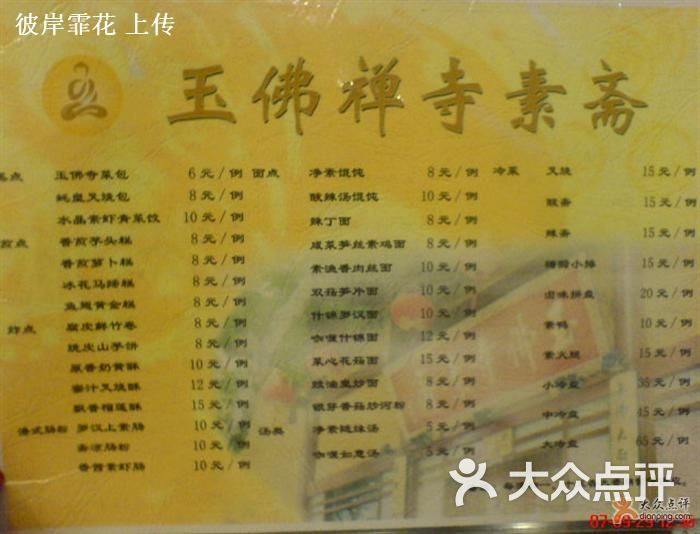 彼岸霏花 上传
玉佛禅寺素斋
玉佛寺菜包 6元/例
蚝皇叉烧包 8元/例
水晶素虾青菜饺 10元/例
煎点 香煎芋头糕 8元/例
香煎萝卜糕 8元/例
冰花马蹄糕 8元/例
鱼翅黄金糕 8元/例
炸点 腐皮鲜竹卷 8元/例
山芋饼 8元/例
奶黄酥 10元/例
蜜汁叉烧酥 12元/例
飘香榴莲酥 15元/例
港式肠粉 罗汉上素肠 10元/例
斋凉肠粉 10元/例
香茜素虾肠 10元/例
面点 净素馄饨 8元/例
酸辣汤馄饨 10元/例
辣丁面 8元/例
咸菜笋丝素鸡面 8元/例
素渔香肉丝面 10元/例
双菇笋片面 10元/例
什锦罗汉面 10元/例
咖喱什锦面 12元/例
菜心花菇面 15元/例
豉油皇炒面 8元/例
银芽香菇炒河粉 8元/例
汤类 净素 汤 5元/例
咖喱如意汤 5元/例
冷菜 叉烧 15元/例
酸斋 15元/例
辣斋 15元/例
糖醋小排 15元/例
卤味拼盘 20元/例
素鸭 10元/例
素火腿 15元/例
小冷盘 35元/例
中冷盘 45元/例
大冷盘 65元/例
大众点评
大众点评
dianping.com